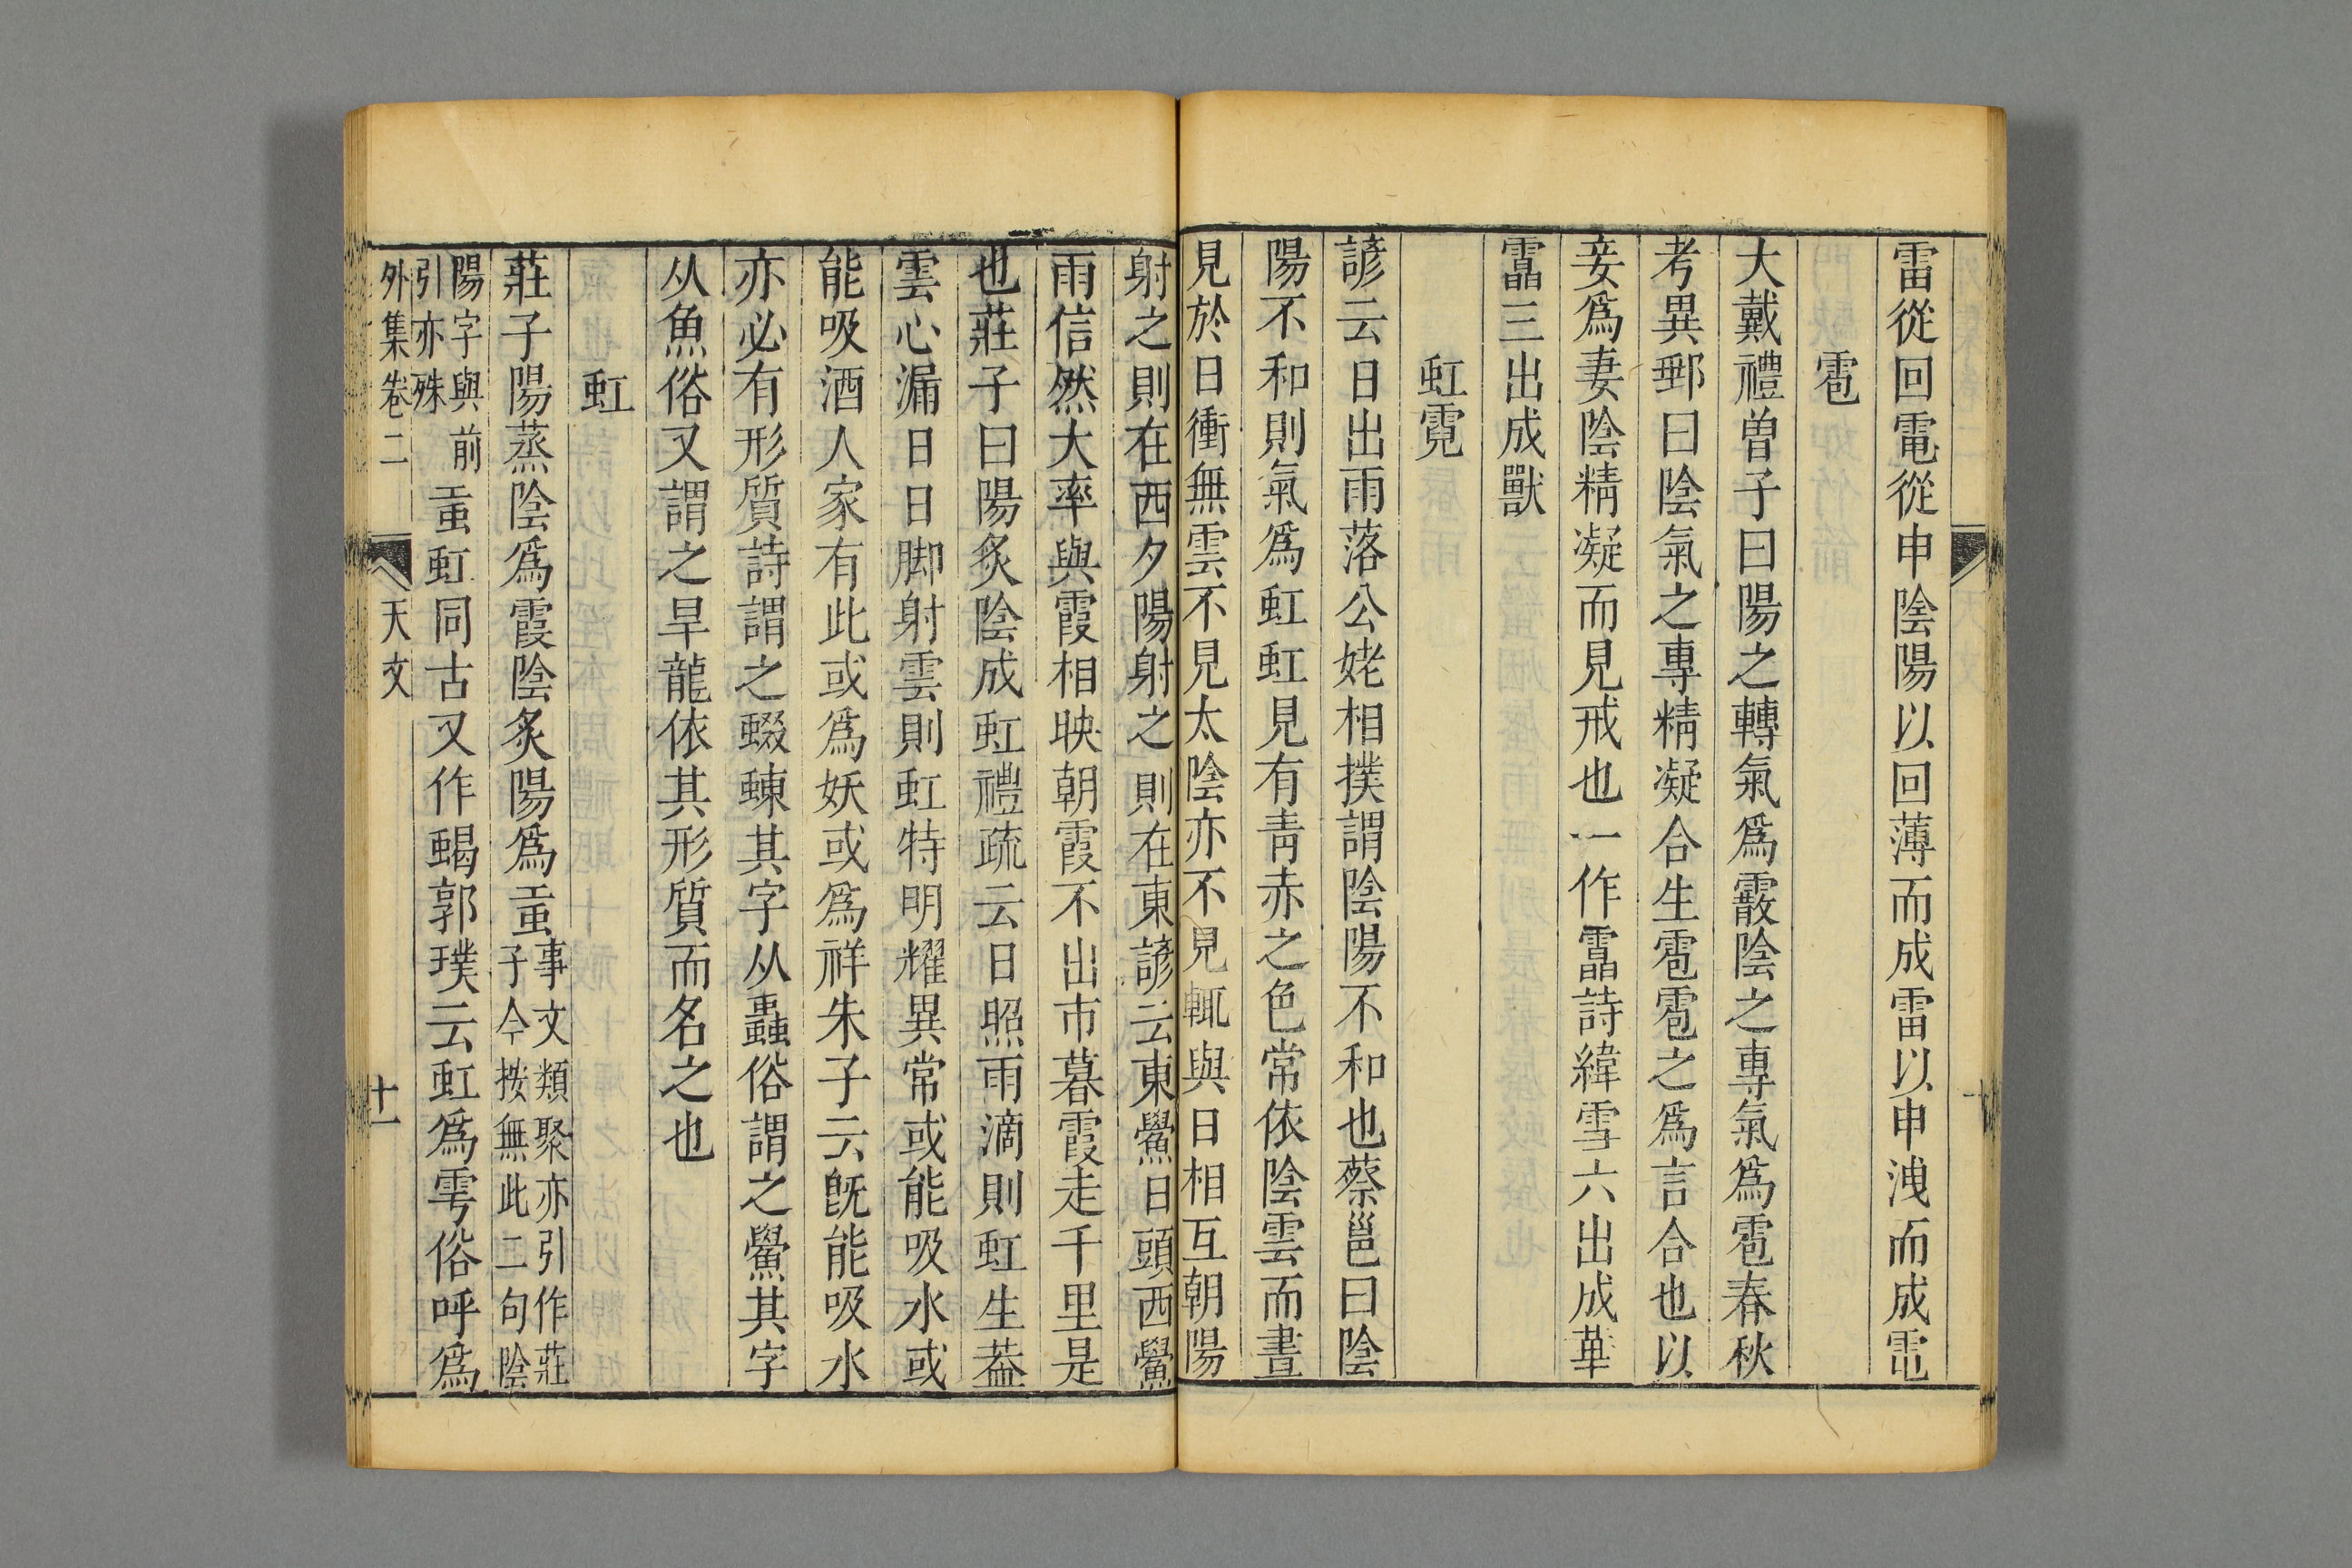 雷從回電從申陰陽以回薄而成雷以申洩而成電
雹
大戴禮曾子曰陽之轉氣爲霰陰之專氣爲雹春秋
考異郵曰陰氣之專精凝合生雹雹之爲言合也以
妾爲妻陰精凝而見戒也一作靐詩緯雪六出成華
靐三出成獸
虹霓
諺云日出雨落公姥相撲謂陰陽不和也蔡邕曰陰
陽不和則氣爲虹虹見有青赤之色常依陰雲而晝
見於日衝無雲不見太陰亦不見輒與日相互朝陽
射之則在西夕陽射之則在東諺云東鱟日頭西鱟
雨信然大率與霞相映朝霞不出市暮霞走千里是
也莊子曰陽炙陰成虹禮疏云日照雨滴則虹生葢
雲心漏日日脚射雲則虹特明耀異常或能吸水或
能吸酒人家有此或爲妖或爲祥朱子云旣能吸水
亦必有形質詩謂之蝃蝀其字从蟲俗謂之鱟其字
从魚俗又謂之旱龍依其形質而名之也
虹
莊子陽蒸陰爲霞陰炙陽爲䖝事文類聚亦引作莊
子今按無此二句陰
陽字與前
引亦殊
䖝虹同古又作蝎郭璞云虹爲雩俗呼爲
外集卷二 天文 十一